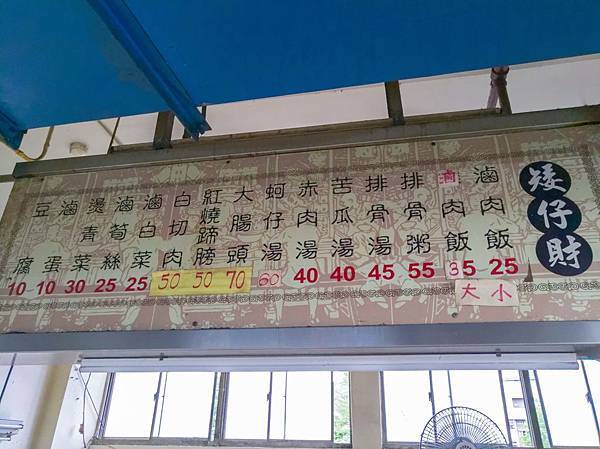 矮仔財
滷肉飯 25 小
肉飯 35 大
排骨粥 55
排骨湯 45
苦瓜湯 40
赤肉湯 40
蚵仔湯 60
大腸頭 70
紅燒蹄膀 50
白切肉 50
滷白菜 25
滷筍絲 25
燙青菜 30
滷蛋 10
豆腐 10